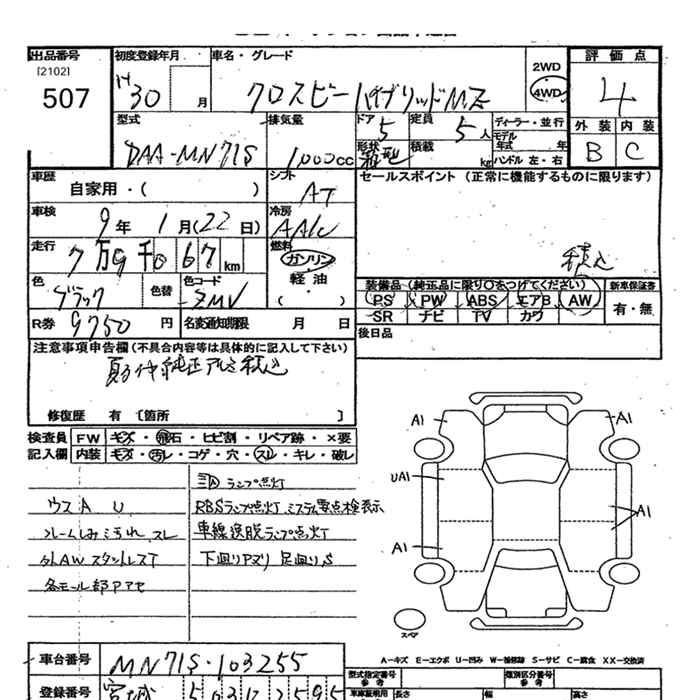 出品番号 初度登録年月 車名・グレード 2WD 評価点
[2102]
507 H30 月 クロスビー ハイブリッドMZ 4WD 4
型式 排気量 ドア 5 定員 5人 ディーラー・並行 外装 内装
DAA-MN71S 1,000cc 形状 積載 kg モデル年式 年 ハンドル 左・右 B C
車歴 シフト セールスポイント (正常に機能するものに限ります)
自家用・( ) AT
車検 9年 1月(22日) 冷房 AAC
走行 7万9千067km 燃料 ガソリン 積込
軽油
( )
色 ブラック 色替 色コード ZMV 装備品 (純正品に限り○をつけてください) 新車保証書
PS PW ABS エアB AW 有・無
SR ナビ TV カワ
R券 9750円 名変通知期限 月 日 後日品
注意事項申告欄(不具合内容等は具体的に記入して下さい)
夏タイヤ純正アルミ積込
修復歴 有 [箇所 ]
検査員 FW キズ・飛石・ヒビ割・リペア跡・×要
記入欄 内装 キズ・汚レ・コゲ・穴・スレ・キレ・破レ
ランプ点灯
ウスAU RBSランプ点灯 システム要点検表示
シートしみ汚れ スレ 車線逸脱ランプ点灯
外AWスタットレスT 下廻りアリ 足廻りS
各モール部アセ
A1 A1
UA1
A1
A1
スペア
A-キズ E-エクボ U-凹み W-補修跡 S-サビ C-腐食 XX-交換済
車台番号 MN71S-103255
型式指定番号 類別区分番号
参考 参考
登録番号 宮城 車庫証明用 長さ 幅 高さ